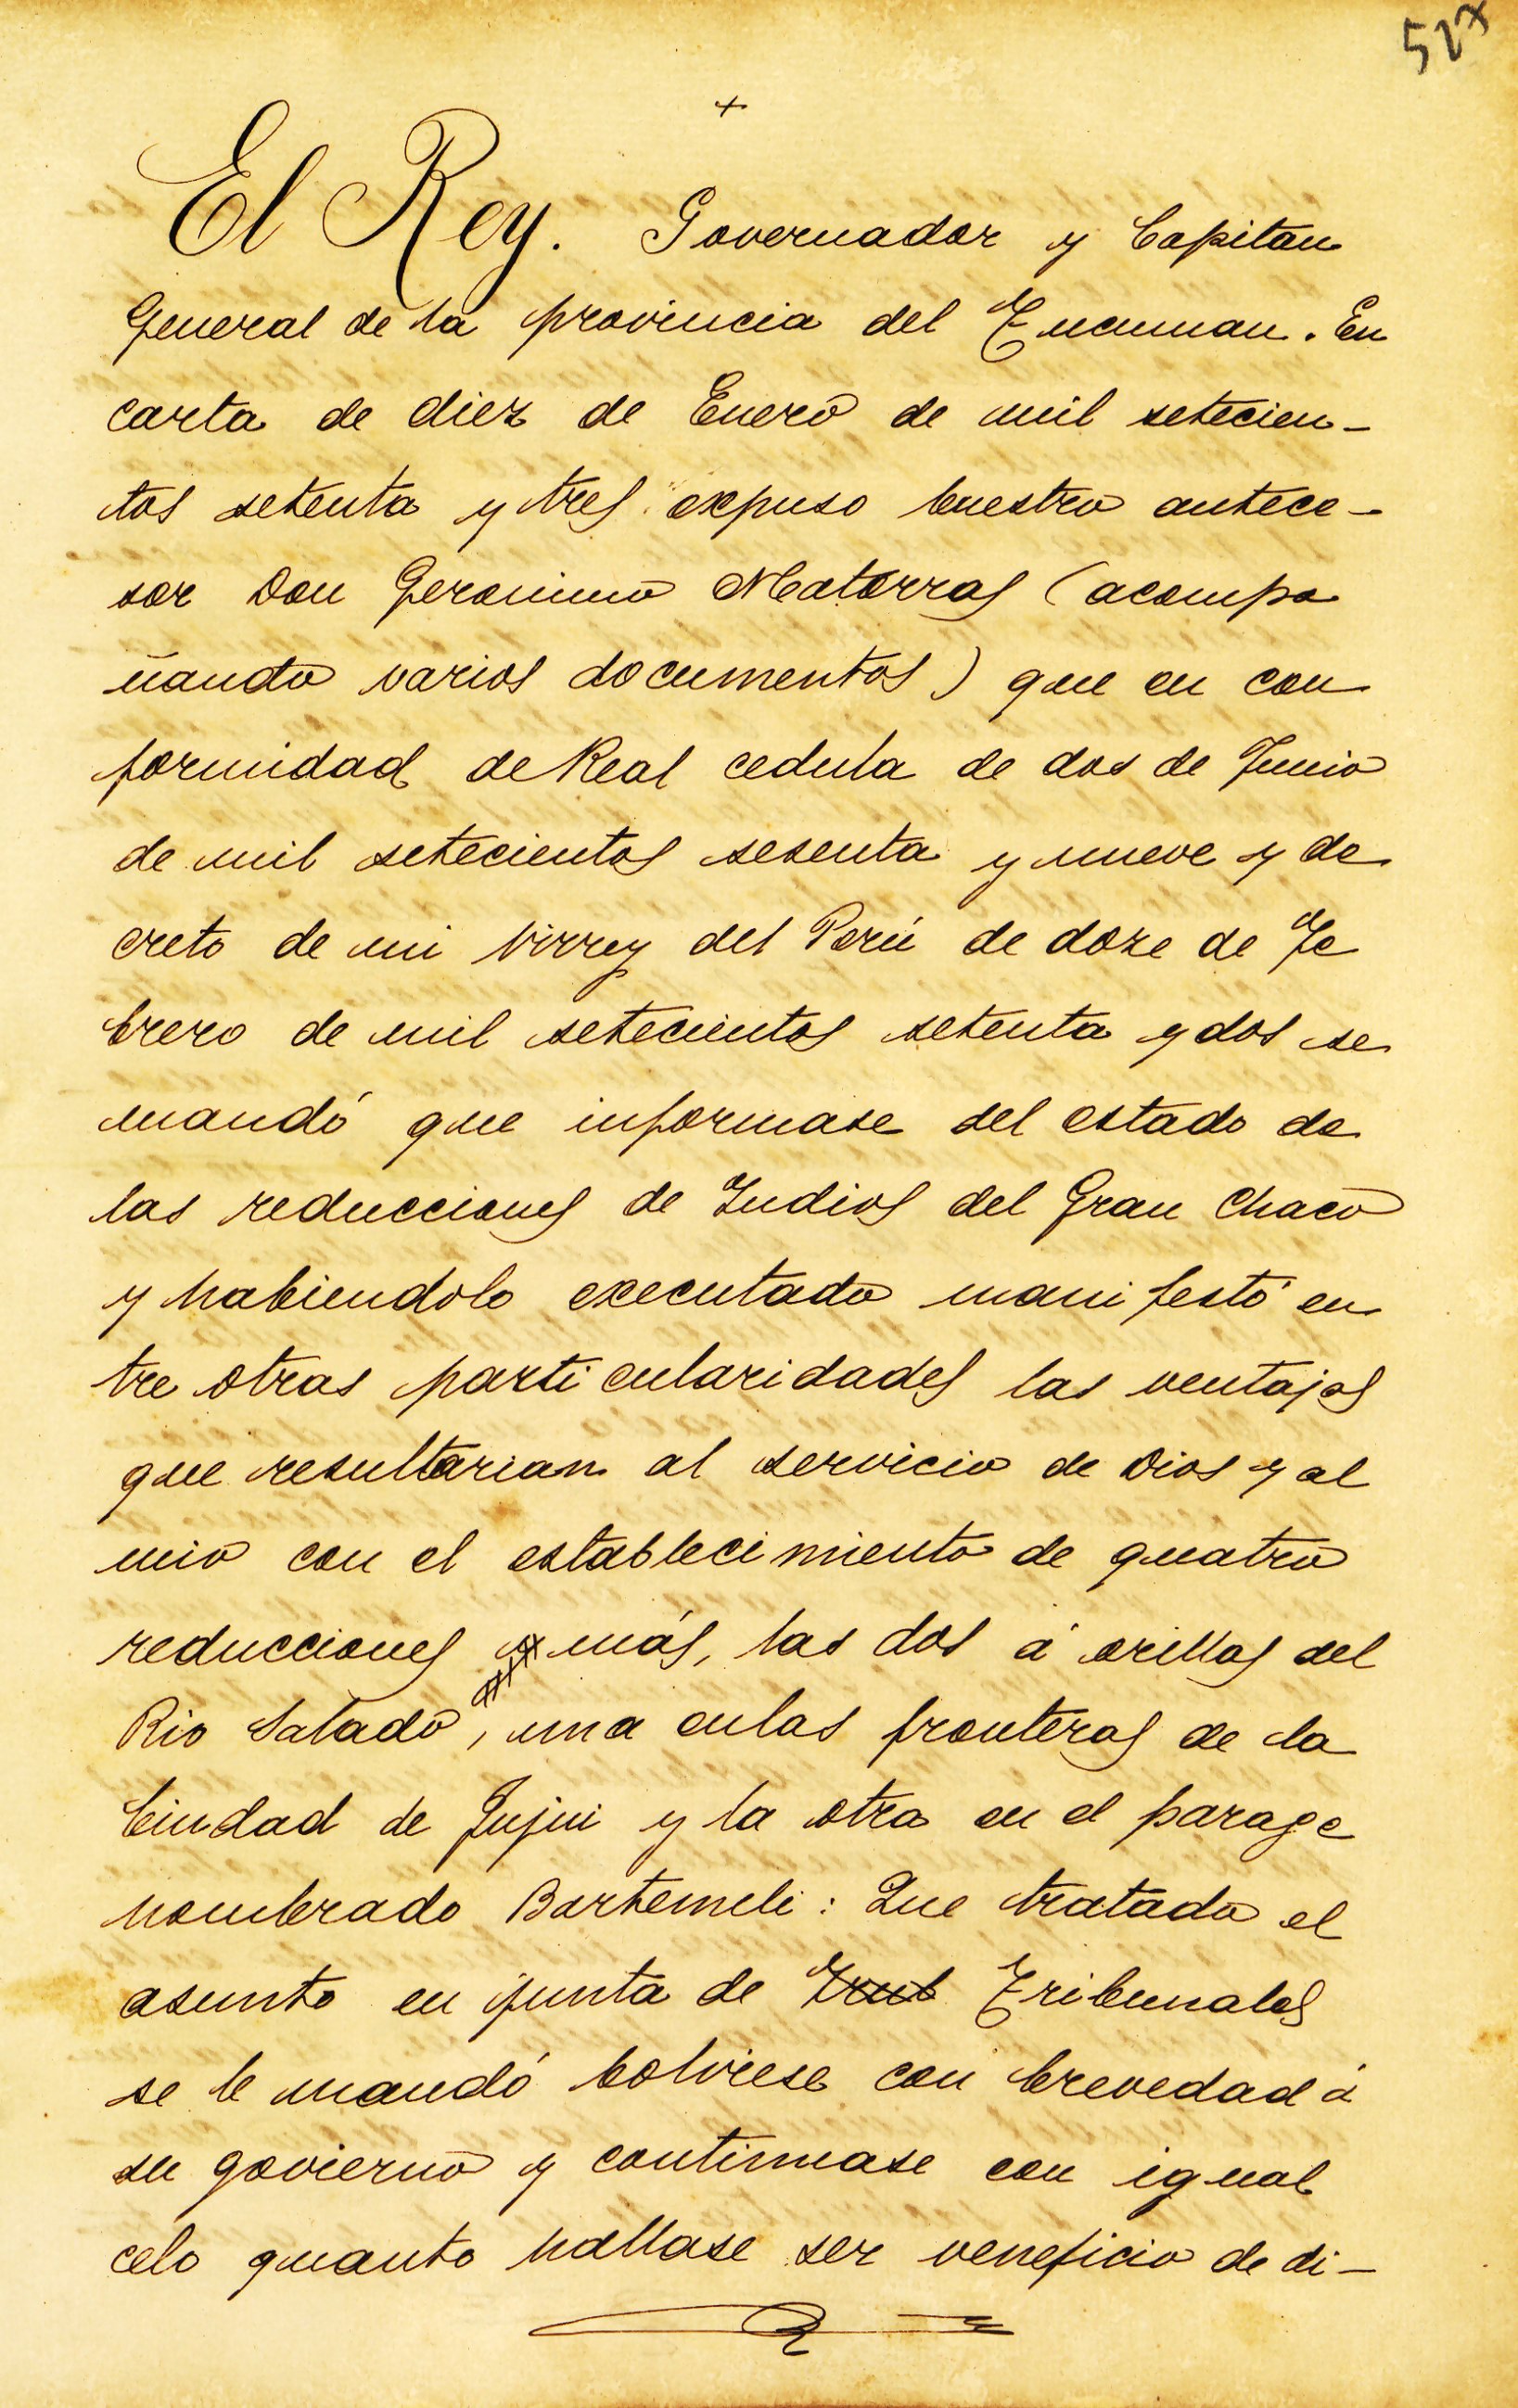 527
+
El Rey. Governador y Capitan
General de la provincia del Tucuman. En
carta de diez de Enero de mil setecien-
tos setenta y tres expuso buestro antece-
sor Don Geronimo Matorras (acompa
ñando varios documentos) que en con
formidad de Real cedula de dos de Junio
de mil setecientos sesenta y nueve y de
creto de mi Virrey del Perú de doze de Fe
brero de mil setecientos setenta y dos se
mandó que informase del estado de
las reducciones de Indios del Gran Chaco
y habiendolo executado manifestó en
tre otras particularidades las ventajas
que resultarian al servicio de Dios y al
mio con el establecimiento de quatro
reducciones más, las dos á orillas del
Rio Salado, una en las fronteras de la
Ciudad de Jujui y la otra en el parage
nombrado Bartemeli: Que tratado el
asunto en junta de Tribunales
se le mandó bolviese con brevedad á
su govierno y continuase con igual
celo quanto hallase ser veneficio de di-